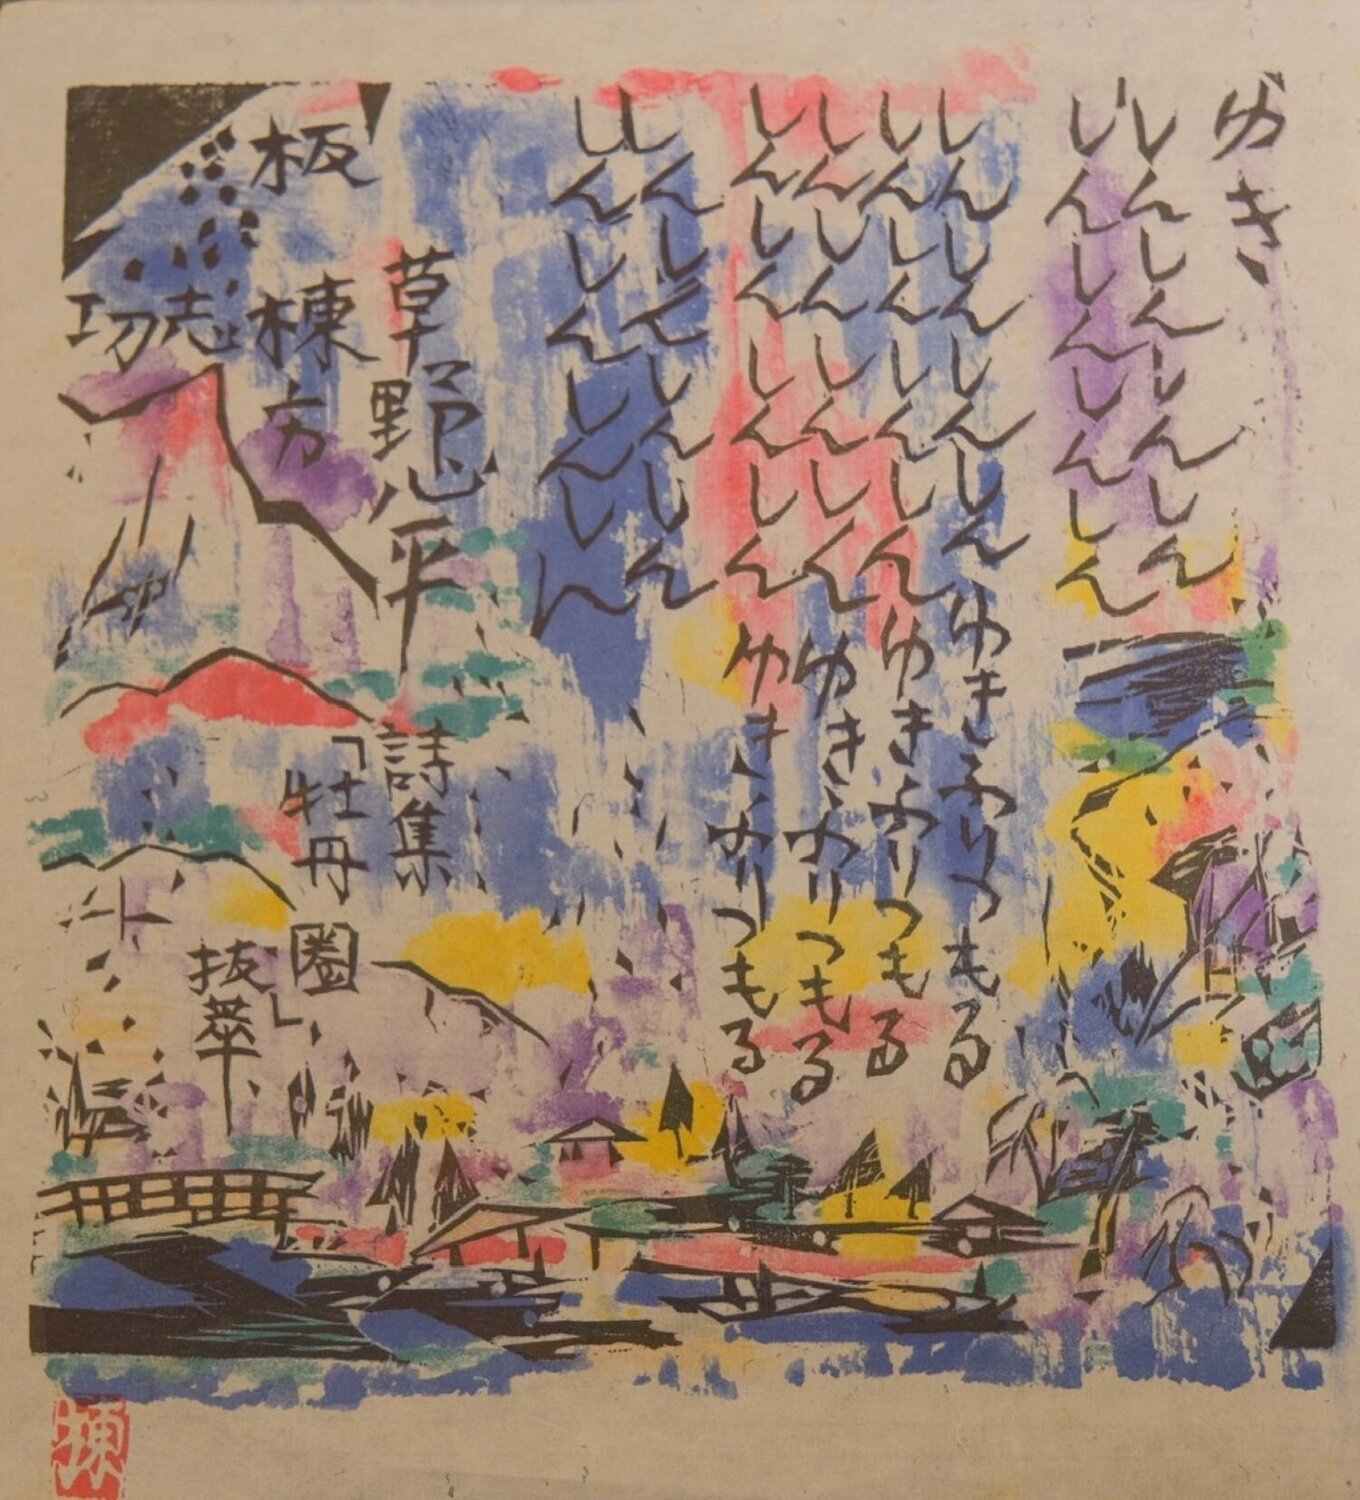 ゆき
しんしんしんしん
しんしんしんしん
しんしんしんしんゆきふりつもる
しんしんしんしんゆきふりつもる
しんしんしんしんゆきふりつもる
しんしんしんしんゆきふりつもる
しんしんしんしん
しんしんしんしん
草野心平 詩集
「牡丹圏」
抜萃
板 棟方
志
功
棟